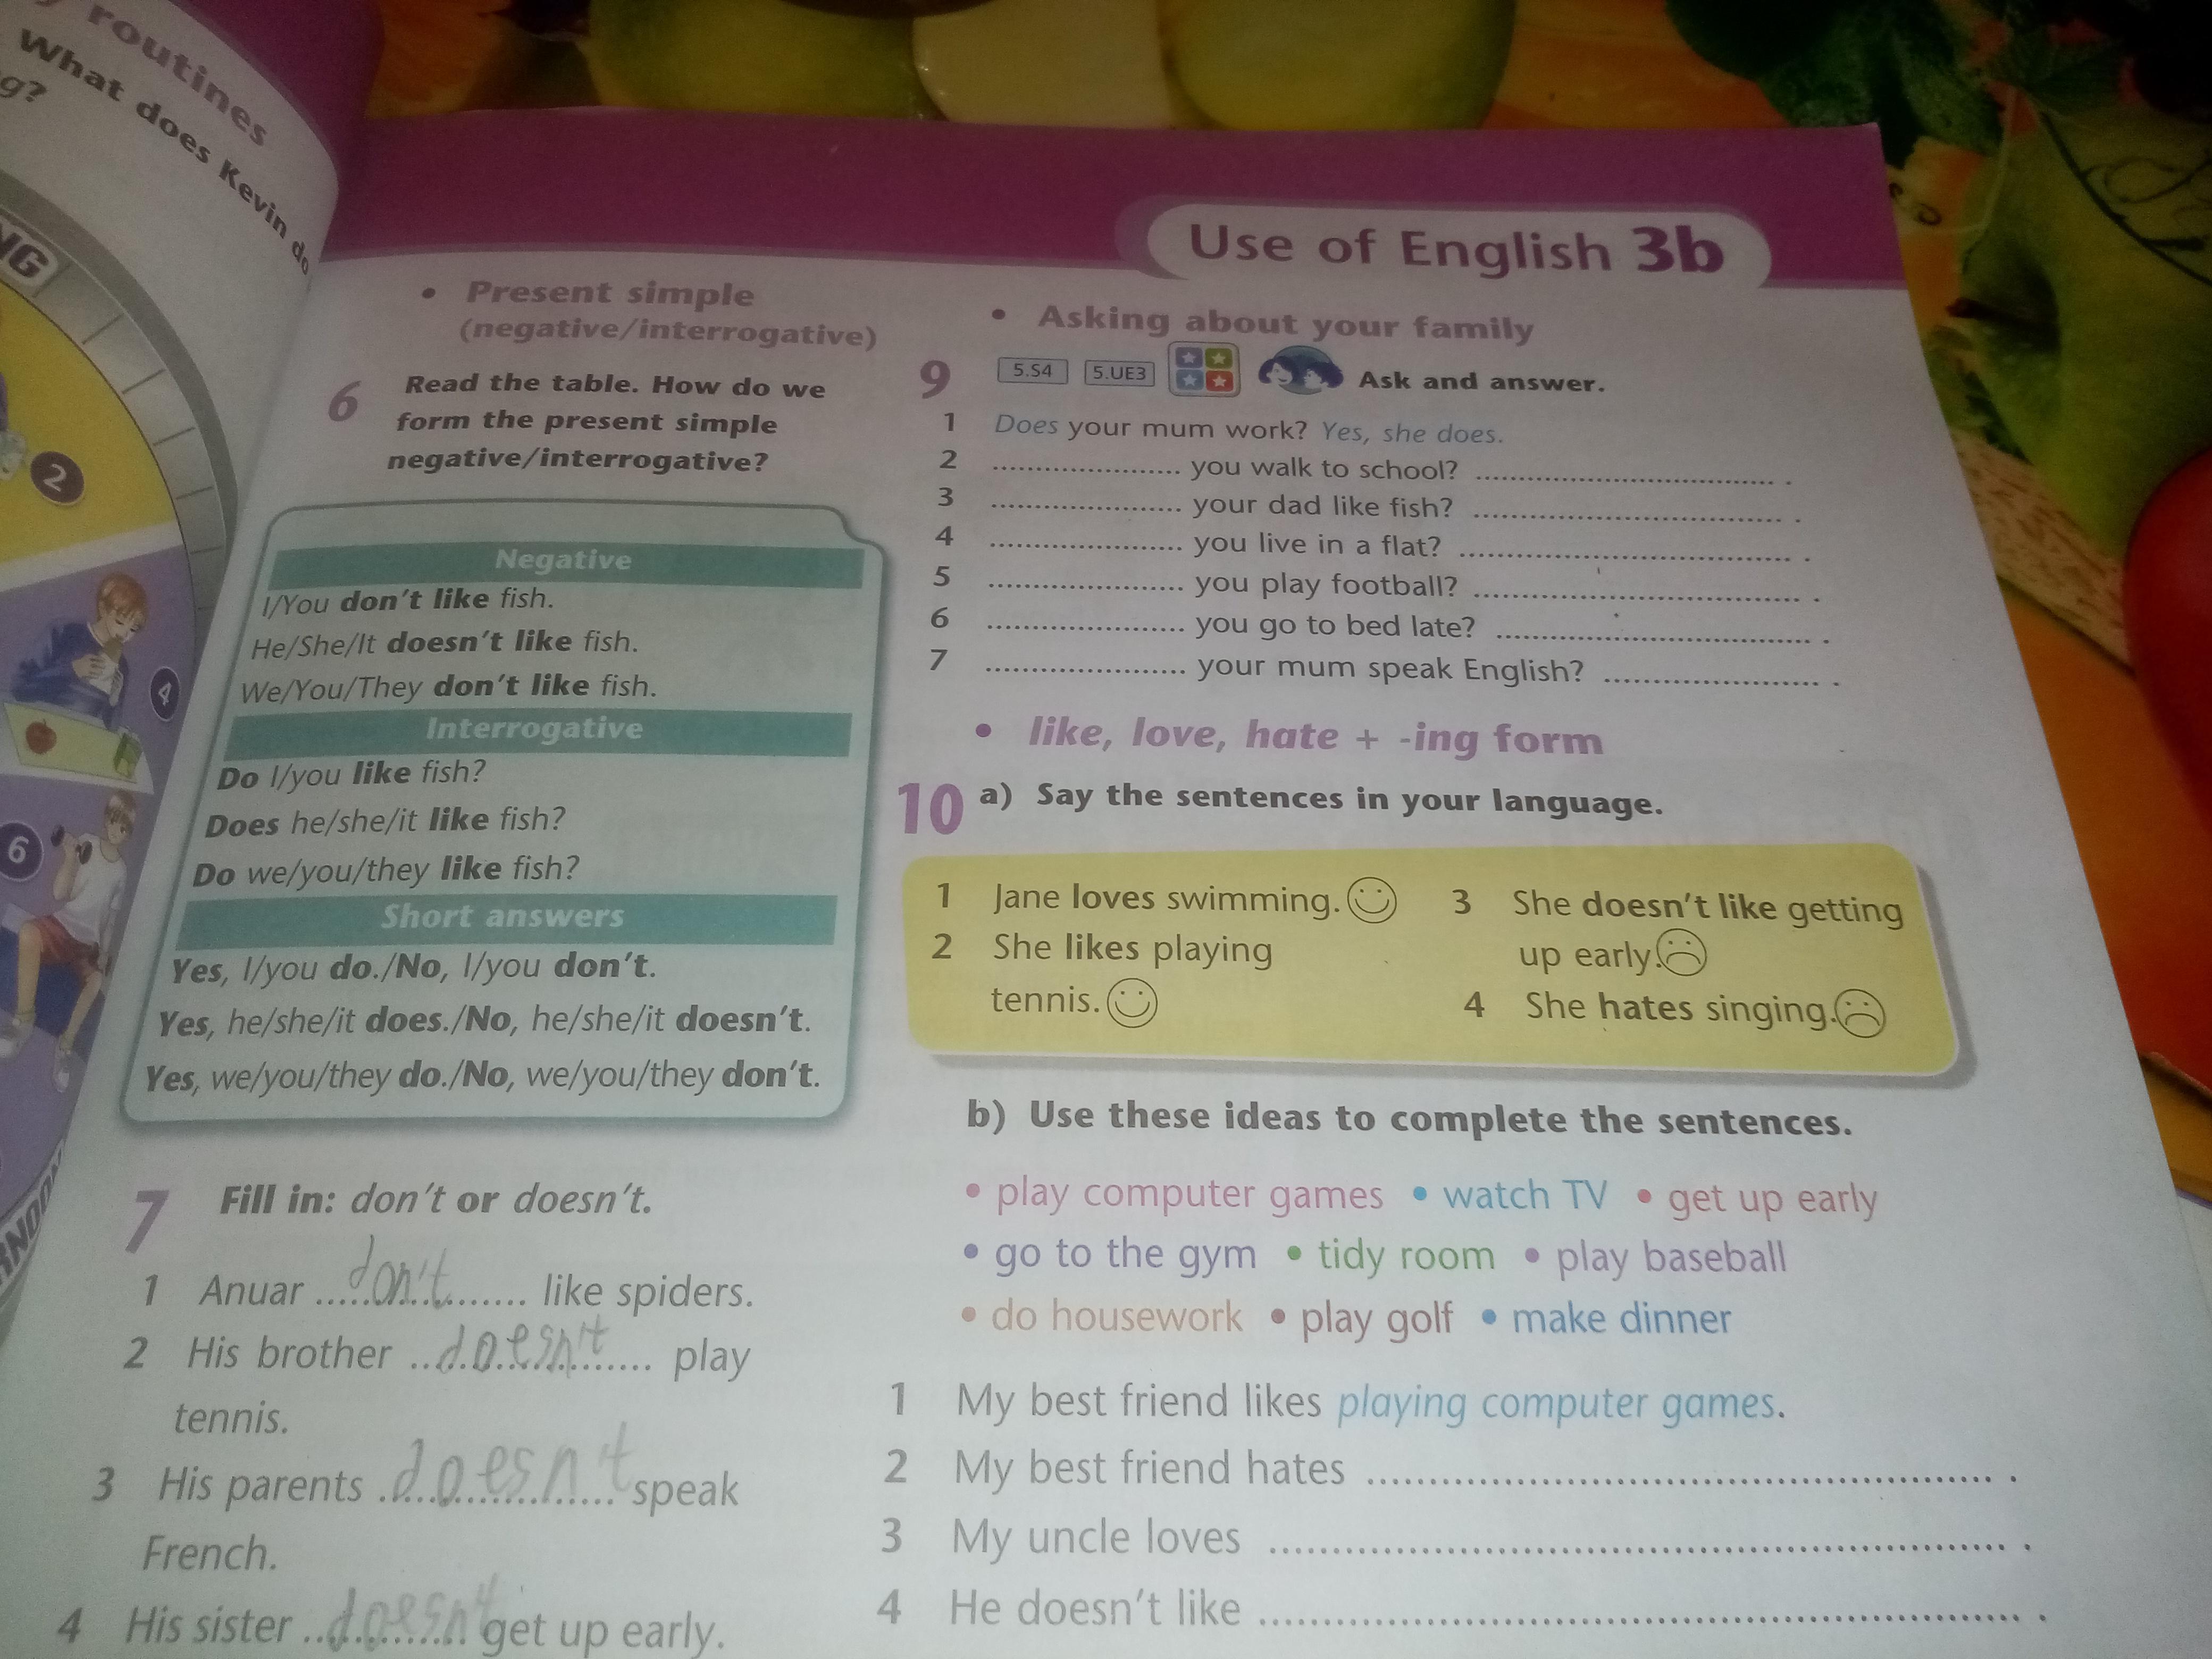 routines
What does Kevin do
g?
NG
2
4
6
Use of English 3b
• Present simple
(negative/interrogative)
6 Read the table. How do we
form the present simple
negative/interrogative?
Negative
I/You don't like fish.
He/She/It doesn't like fish.
We/You/They don't like fish.
Interrogative
Do I/you like fish?
Does he/she/it like fish?
Do we/you/they like fish?
Short answers
Yes, I/you do./No, I/you don't.
Yes, he/she/it does./No, he/she/it doesn't.
Yes, we/you/they do./No, we/you/they don't.
7 Fill in: don't or doesn't.
1 Anuar ....don't.... like spiders.
2 His brother ...doesn't... play
tennis.
3 His parents ...doesn't... speak
French.
4 His sister ...doesn't... get up early.
• Asking about your family
9 5.S4 5.UE3 Ask and answer.
1 Does your mum work? Yes, she does.
2 ........................ you walk to school? ........................ .
3 ........................ your dad like fish? ........................ .
4 ........................ you live in a flat? ........................ .
5 ........................ you play football? ........................ .
6 ........................ you go to bed late? ........................ .
7 ........................ your mum speak English? ........................ .
• like, love, hate + -ing form
10 a) Say the sentences in your language.
1 Jane loves swimming.
2 She likes playing
tennis.
3 She doesn't like getting
up early.
4 She hates singing.
b) Use these ideas to complete the sentences.
• play computer games • watch TV • get up early
• go to the gym • tidy room • play baseball
• do housework • play golf • make dinner
1 My best friend likes playing computer games.
2 My best friend hates ........................ .
3 My uncle loves ........................ .
4 He doesn't like ........................ .